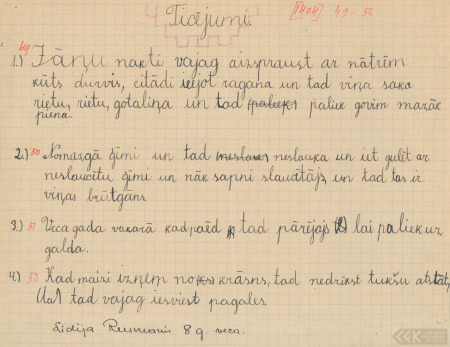 Ticējumi. [1404] 49-52
49
1.) Jāņu nakti vajag aizspraust ar nātrēm
kūts durvis, citādi ieejot ragana un tad viņa saka
rietu, rietu, gotaliņa un tad (paliek) paliek govīm mazāk
piena.
2.) 50 Nomazgā ģīmi un tad neslauka un iet gulēt ar
neslaucītu ģīmi un nāk sapnī slaucītājs, un tad tas ir
viņas brūtgans.
3.) 51 Veca gada vakarā kad paēd tad pārējais lai paliek uz
galda.
4.) 52 Kad maizi izņem no krāsns, tad nedrīkst tukšu atstāt,
tad vajag iesviest pagales.
Lidija 8 g. veca.